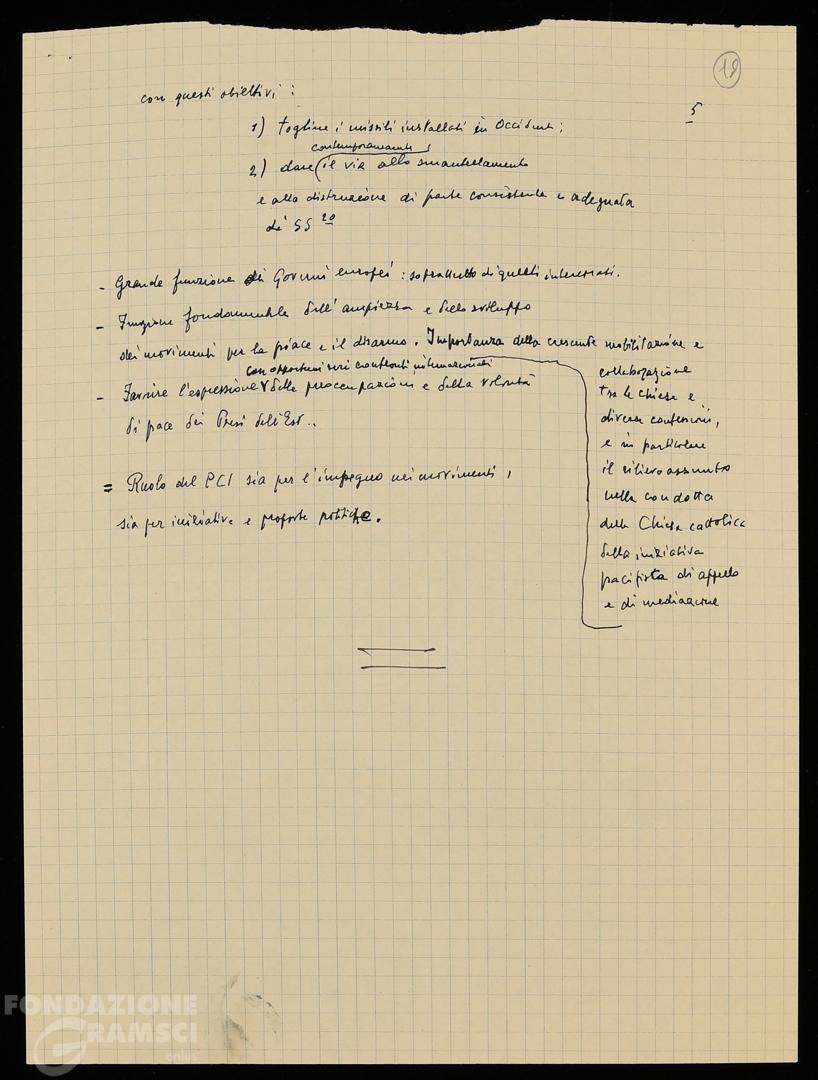 18
5
con questi obiettivi:
1) togliere i missili installati in Occidente;
contemporaneamente
2) dare il via allo smantellamento
e alla distruzione di parte consistente e adeguata
di SS 20
- Grande funzione di Governi europei: soprattutto di quelli interessati.
- Funzione fondamentale dell'ampiezza e dello sviluppo
dei movimenti per la pace e il disarmo. Importanza della crescente mobilitazione e
collaborazione
tra le chiese e
diverse confessioni,
e in particolare
il rilievo assunto
nella condotta
della Chiesa cattolica
della iniziativa
pacifista di appello
e di mediazione
con opportuni seri confronti internazionali
- Favorire l'espressione delle preoccupazioni e della volontà
di pace dei Paesi dell'Est..
= Ruolo del PCI sia per l'impegno nei movimenti,
sia per iniziative e proposte politiche.
FONDAZIONE
GRAMSCI
onlus